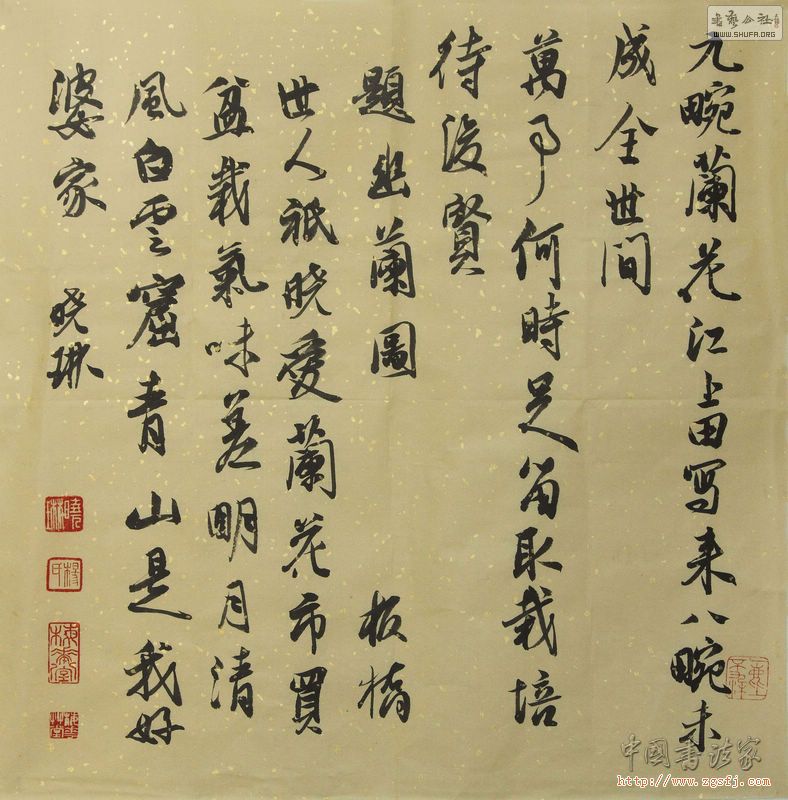 九畹蘭花江上田写来八畹未
成全世间
萬事何時足留取栽培
待後賢
題幽蘭圖 板橋
世人祇晓愛蘭花市買
盆栽氣味差明月清
風白雲窟青山是我好
婆家 晓琳
中國書法家
http://www.zgsfj.com
書藝公社
WWW.SHUFA.ORG